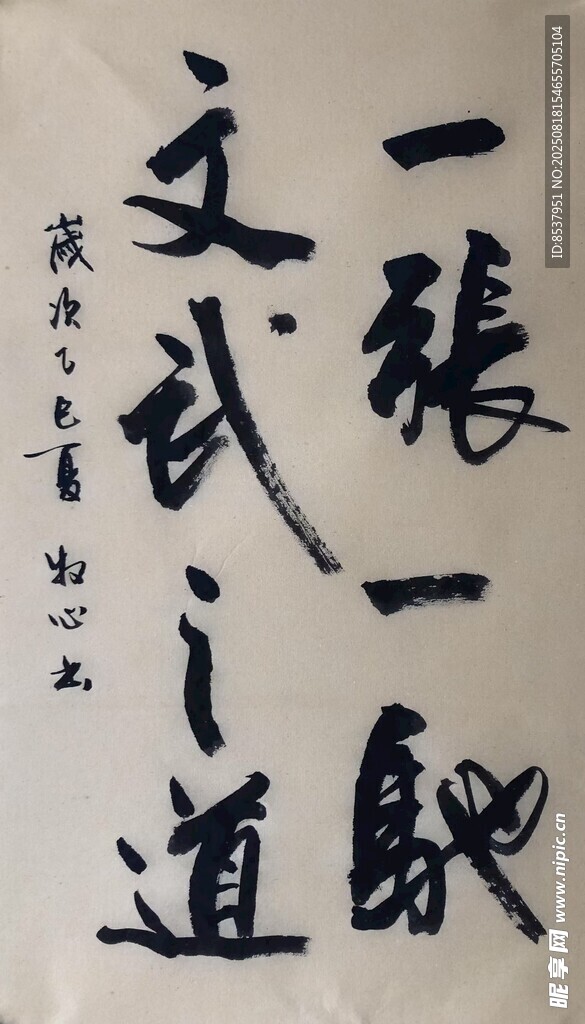 一張一馳
文武之道
歲次乙巳夏 牧心书
ID:8537951 NO:20250818154655705104
昵享网 www.nipic.cn